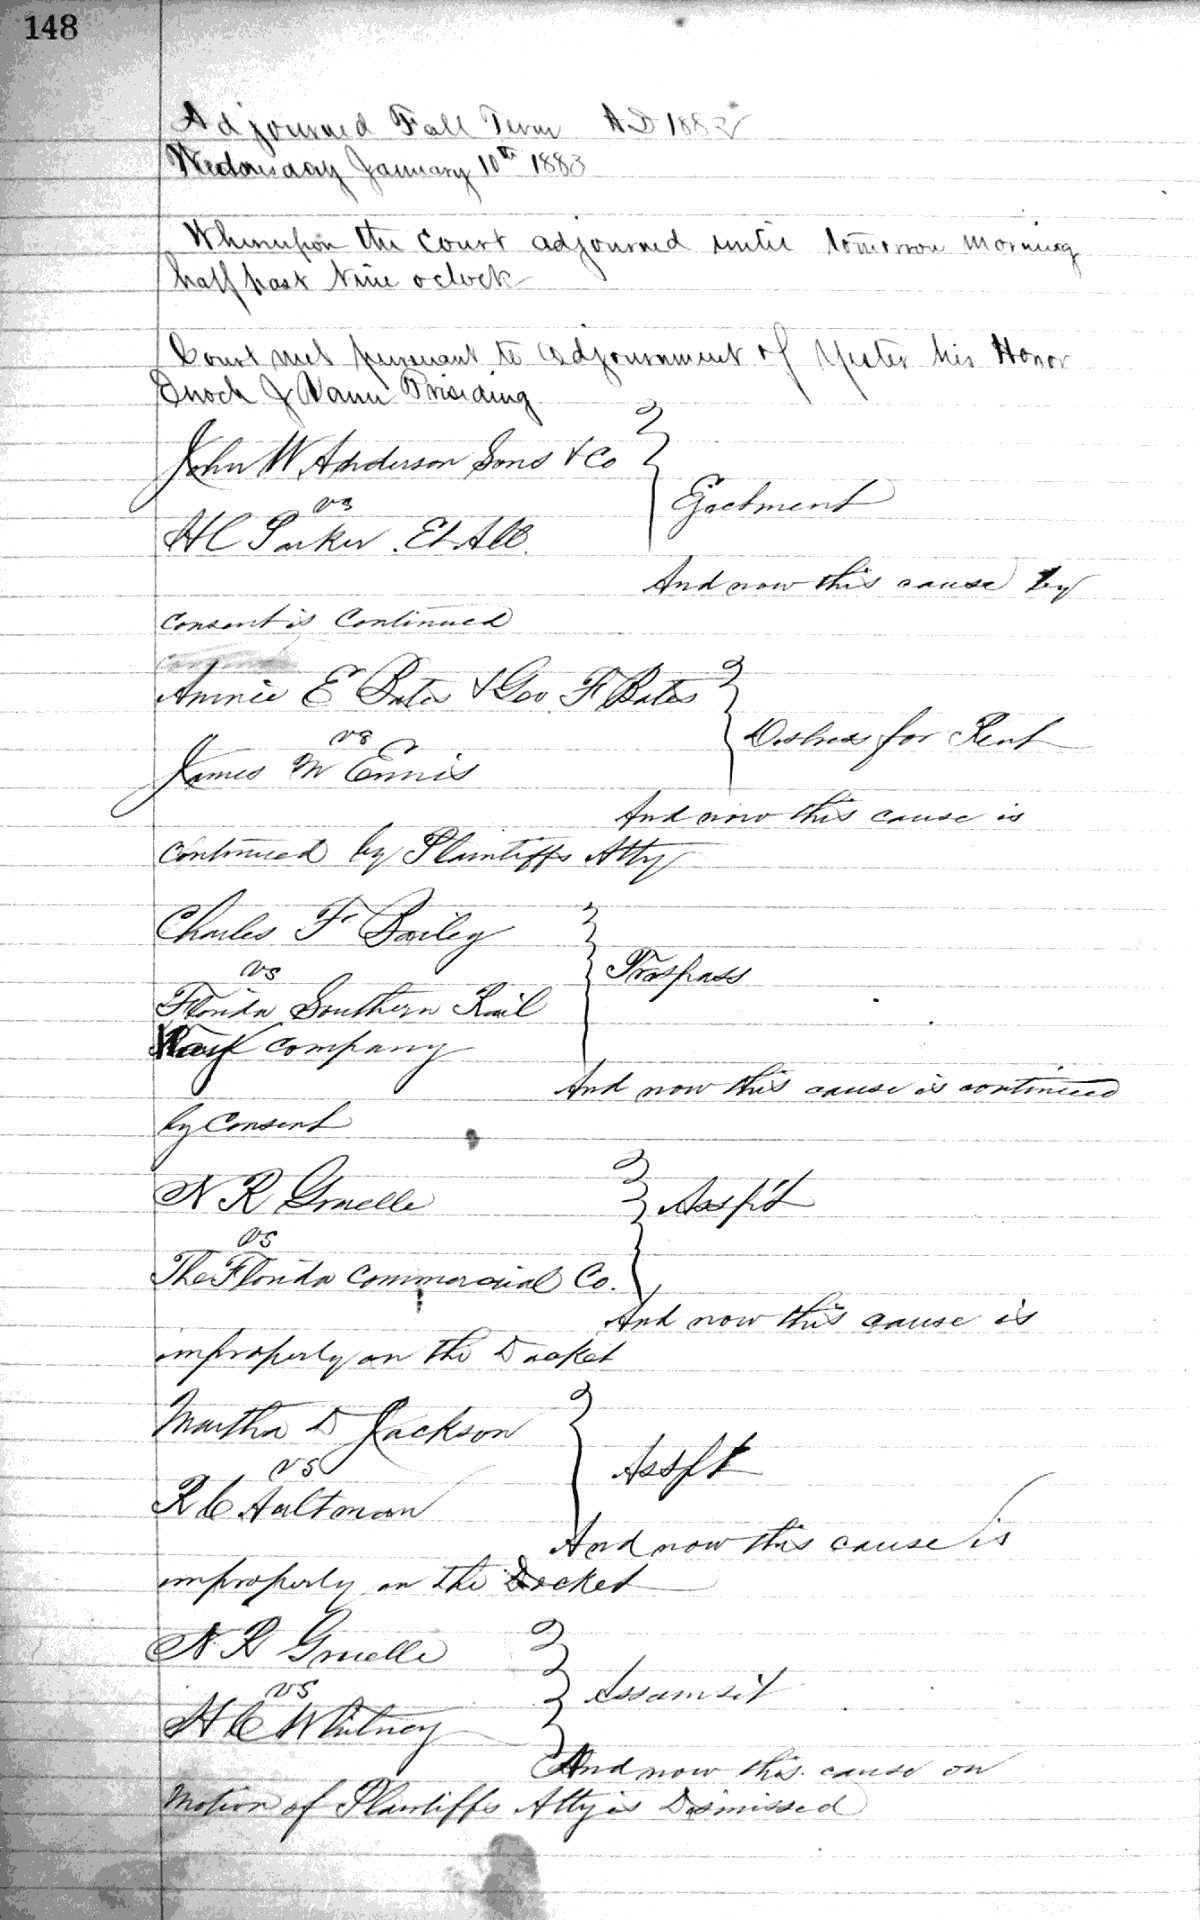 148
Adjourned Fall Term AD 1882
Wednesday January 10th 1883
Whereupon the Court adjourned until tomorrow morning
half past Nine oclock
Court met pursuant to adjournment of Yester his Honor
Enoch J Vann Presiding
John W. Anderson Sons & Co
vs
Ejectment
H C Parker . Et. All.
And now this cause by
consent is Continued
Annie E Bates & Geo. F Bates
vs
Distress for Rent
James M Ennis
And now this cause is
continued by Plaintiffs Atty
Charles F Bailey
vs
Trespass
Florida Southern Rail
Way company
And now this cause is continued
by Consent
N R Gruelle
Assp't
vs
The Florida Commercial Co.
And now this cause is
improperly on the Docket
Martha D Jackson
vs
Asspt
R C Aultman
And now this cause is
improperly on the Docket
N. R Gruelle
vs
Assumsit
H C Whitney
And now this cause on
Motion of Plaintiffs Atty is Dismissed